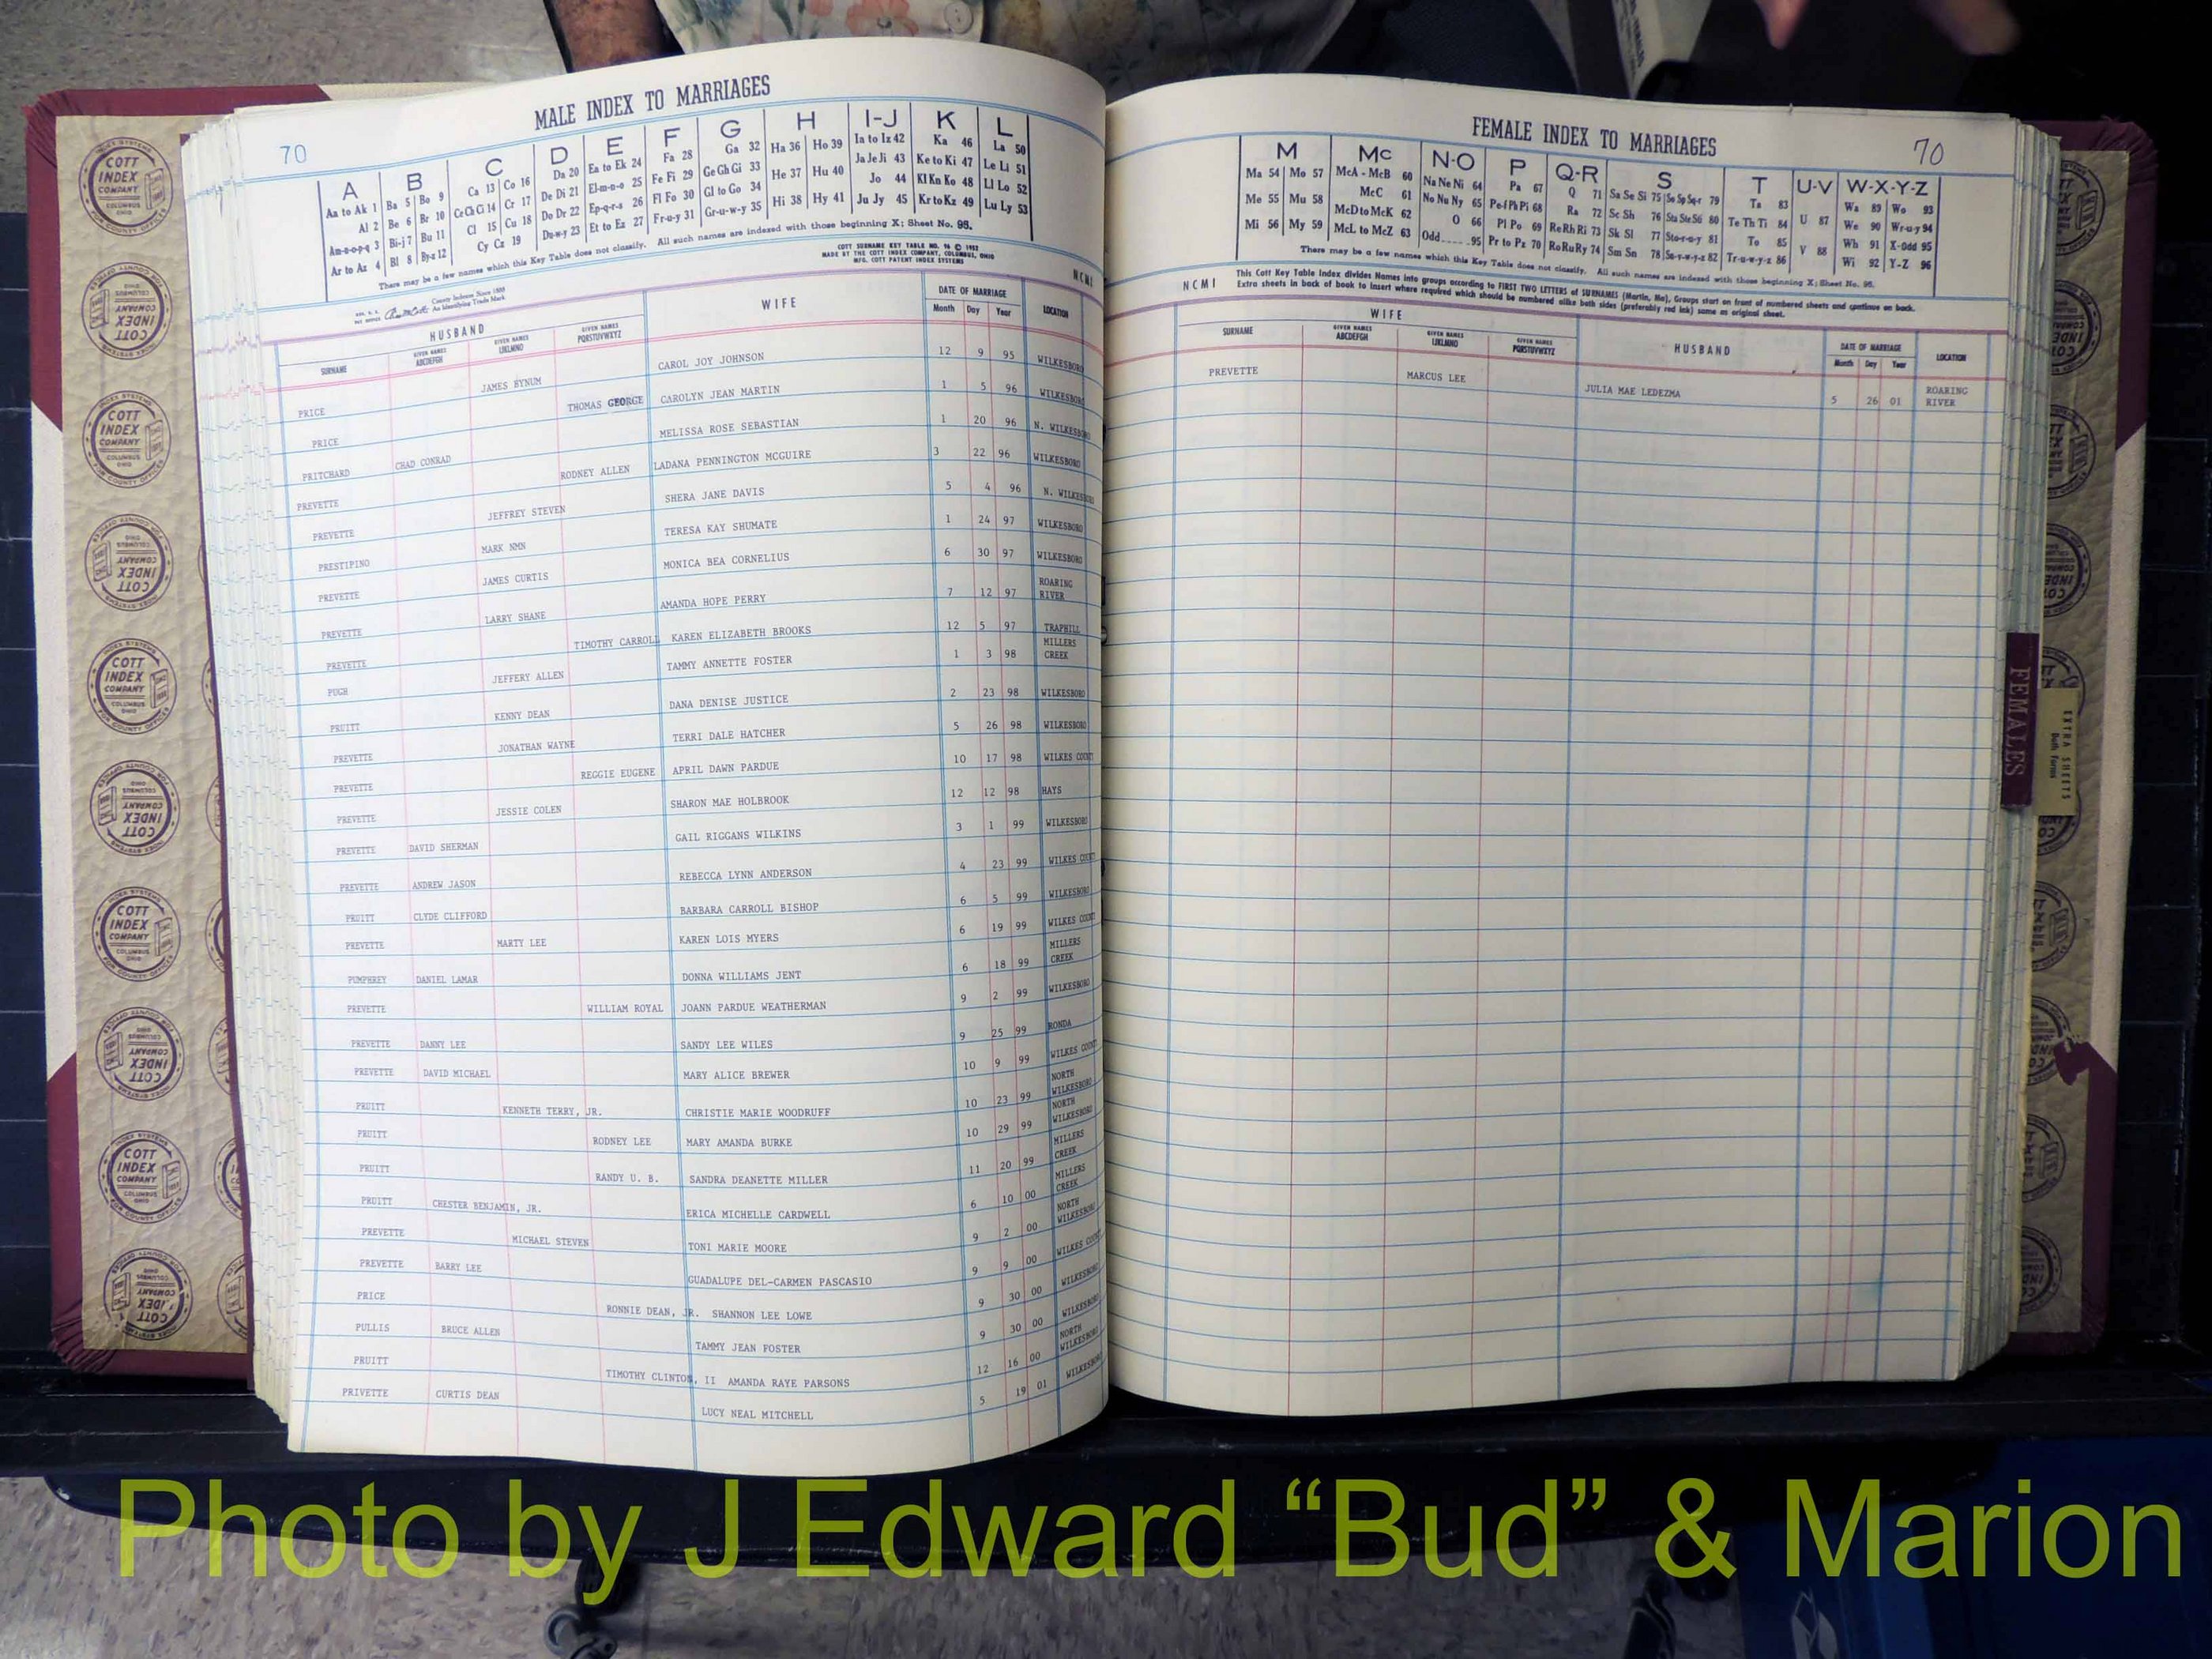 MALE INDEX TO MARRIAGES
70
A B C D E F G H I-J K L
Aa to Ak 1 Ba 5 Bo 9 Ca 13 Co 16 Da 20 Ea to Ek 24 Fa 28 Ga 32 Ha 36 Ho 39 Ia to Iz 42 Ka 46 La 50
Al 2 Be 6 Br 10 Ce Ch Ci 14 Cr 17 De Di 21 El-m-n-o 25 Fe Fi 29 Ge Gh Gi 33 He 37 Hu 40 Ja Je Ji 43 Ke to Ki 47 Le Li 51
Am-n-o-p-q 3 Bi-j 7 Bu 11 Cl 15 Cu 18 Do Dr 22 Ep-q-r-s 26 Fl Fo 30 Gl to Go 34 Hi 38 Hy 41 Jo 44 Kl Kn Ko 48 Ll Lo 52
Ar to Az 4 Bl 8 By-z 12 Cy Cz 19 Du-w-y 23 Et to Ez 27 Fr-u-y 31 Gr-u-w-y 35 Ju Jy 45 Kr to Kz 49 Lu Ly 53
There may be a few names which this Key Table does not classify. All such names are indexed with those beginning X; Sheet No. 95.
COTT SURNAME KEY TABLE NO. 96 © 1952
MADE BY THE COTT INDEX COMPANY, COLUMBUS, OHIO
MFG. COTT PATENT INDEX SYSTEMS
County Indexes Since 1888
An Identifying Trade Mark
NCMI
HUSBAND WIFE DATE OF MARRIAGE LOCATION
SURNAME GIVEN NAMES ABCDEFGH GIVEN NAMES IJKLMNO GIVEN NAMES PQRSTUVWXYZ Month Day Year
PRICE JAMES BYNUM CAROL JOY JOHNSON 12 9 95 WILKESBORO
PRICE THOMAS GEORGE CAROLYN JEAN MARTIN 1 5 96 WILKESBORO
PRITCHARD CHAD CONRAD MELISSA ROSE SEBASTIAN 1 20 96 N. WILKESBORO
PREVETTE RODNEY ALLEN LADANA PENNINGTON MCGUIRE 3 22 96 WILKESBORO
PREVETTE JEFFREY STEVEN SHERA JANE DAVIS 5 4 96 N. WILKESBORO
PRESTIPINO MARK NMN TERESA KAY SHUMATE 1 24 97 WILKESBORO
PREVETTE JAMES CURTIS MONICA BEA CORNELIUS 6 30 97 WILKESBORO
PREVETTE LARRY SHANE AMANDA HOPE PERRY 7 12 97 ROARING RIVER
PREVETTE TIMOTHY CARROLL KAREN ELIZABETH BROOKS 12 5 97 TRAPHILL
PUGH JEFFERY ALLEN TAMMY ANNETTE FOSTER 1 3 98 MILLERS CREEK
PRUITT KENNY DEAN DANA DENISE JUSTICE 2 23 98 WILKESBORO
PREVETTE JONATHAN WAYNE TERRI DALE HATCHER 5 26 98 WILKESBORO
PREVETTE REGGIE EUGENE APRIL DAWN PARDUE 10 17 98 WILKES COUNTY
PREVETTE JESSIE COLEN SHARON MAE HOLBROOK 12 12 98 HAYS
PREVETTE DAVID SHERMAN GAIL RIGGANS WILKINS 3 1 99 WILKESBORO
PREVETTE ANDREW JASON REBECCA LYNN ANDERSON 4 23 99 WILKES COUNTY
PRUITT CLYDE CLIFFORD BARBARA CARROLL BISHOP 6 5 99 WILKESBORO
PREVETTE MARTY LEE KAREN LOIS MYERS 6 19 99 WILKES COUNTY
PUMPHREY DANIEL LAMAR DONNA WILLIAMS JENT 6 18 99 MILLERS CREEK
PREVETTE WILLIAM ROYAL JOANN PARDUE WEATHERMAN 9 2 99 WILKESBORO
PREVETTE DANNY LEE SANDY LEE WILES 9 25 99 RONDA
PREVETTE DAVID MICHAEL MARY ALICE BREWER 10 9 99 WILKES COUNTY
PRUITT KENNETH TERRY, JR. CHRISTIE MARIE WOODRUFF 10 23 99 NORTH WILKESBORO
PRUITT RODNEY LEE MARY AMANDA BURKE 10 29 99 NORTH WILKESBORO
PRUITT RANDY U. B. SANDRA DEANETTE MILLER 11 20 99 MILLERS CREEK
PRUITT CHESTER BENJAMIN, JR. ERICA MICHELLE CARDWELL 6 10 00 MILLERS CREEK
PREVETTE MICHAEL STEVEN TONI MARIE MOORE 9 2 00 NORTH WILKESBORO
PREVETTE BARRY LEE GUADALUPE DEL-CARMEN PASCASIO 9 9 00 WILKES COUNTY
PRICE RONNIE DEAN, JR. SHANNON LEE LOWE 9 30 00 WILKESBORO
PULLIS BRUCE ALLEN TAMMY JEAN FOSTER 9 30 00 WILKESBORO
PRUITT TIMOTHY CLINTON, II AMANDA RAYE PARSONS 12 16 00 NORTH WILKESBORO
PRIVETTE CURTIS DEAN LUCY NEAL MITCHELL 5 19 01 WILKESBORO
FEMALE INDEX TO MARRIAGES
70
M Mc N-O P Q-R S T U-V W-X-Y-Z
Ma 54 Mo 57 McA - McB 60 Na Ne Ni 64 Pa 67 Q 71 Sa Se Si 75 Se Sp Sq-r 79 Ta 83 Wa 89 Wo 93
Me 55 Mu 58 McC 61 No Nu Ny 65 Pe-f Ph Pi 68 Ra 72 Sc Sh 76 Sta Ste Sti 80 Te Th Ti 84 U 87 We 90 Wr-u-y 94
Mi 56 My 59 McD to McK 62 O 66 Pl Po 69 Re Rh Ri 73 Sk Sl 77 Sto-r-u-y 81 To 85 V 88 Wh 91 X-Odd 95
McL to McZ 63 Odd 95 Pr to Pz 70 Ro Ru Ry 74 Sm Sn 78 Su-v-w-y-z 82 Tr-u-w-y-z 86 Wi 92 Y-Z 96
There may be a few names which this Key Table does not classify. All such names are indexed with those beginning X; Sheet No. 95.
This Cott Key Table Index divides Names into groups according to FIRST TWO LETTERS of SURNAMES (Martin, Ma), Groups start on front of numbered sheets and continue on back.
NCMI Extra sheets in back of book to insert where required which should be numbered alike both sides (preferably red ink) same as original sheet.
WIFE HUSBAND DATE OF MARRIAGE LOCATION
SURNAME GIVEN NAMES ABCDEFGH GIVEN NAMES IJKLMNO GIVEN NAMES PQRSTUVWXYZ Month Day Year
PREVETTE MARCUS LEE JULIA MAE LEDEZMA 5 26 01 ROARING RIVER
FEMALES
EXTRA SHEETS
Both Forms
COTT INDEX COMPANY
COLUMBUS OHIO
INDEX SYSTEMS
FOR COUNTY OFFICES
Photo by J Edward “Bud” & Marion